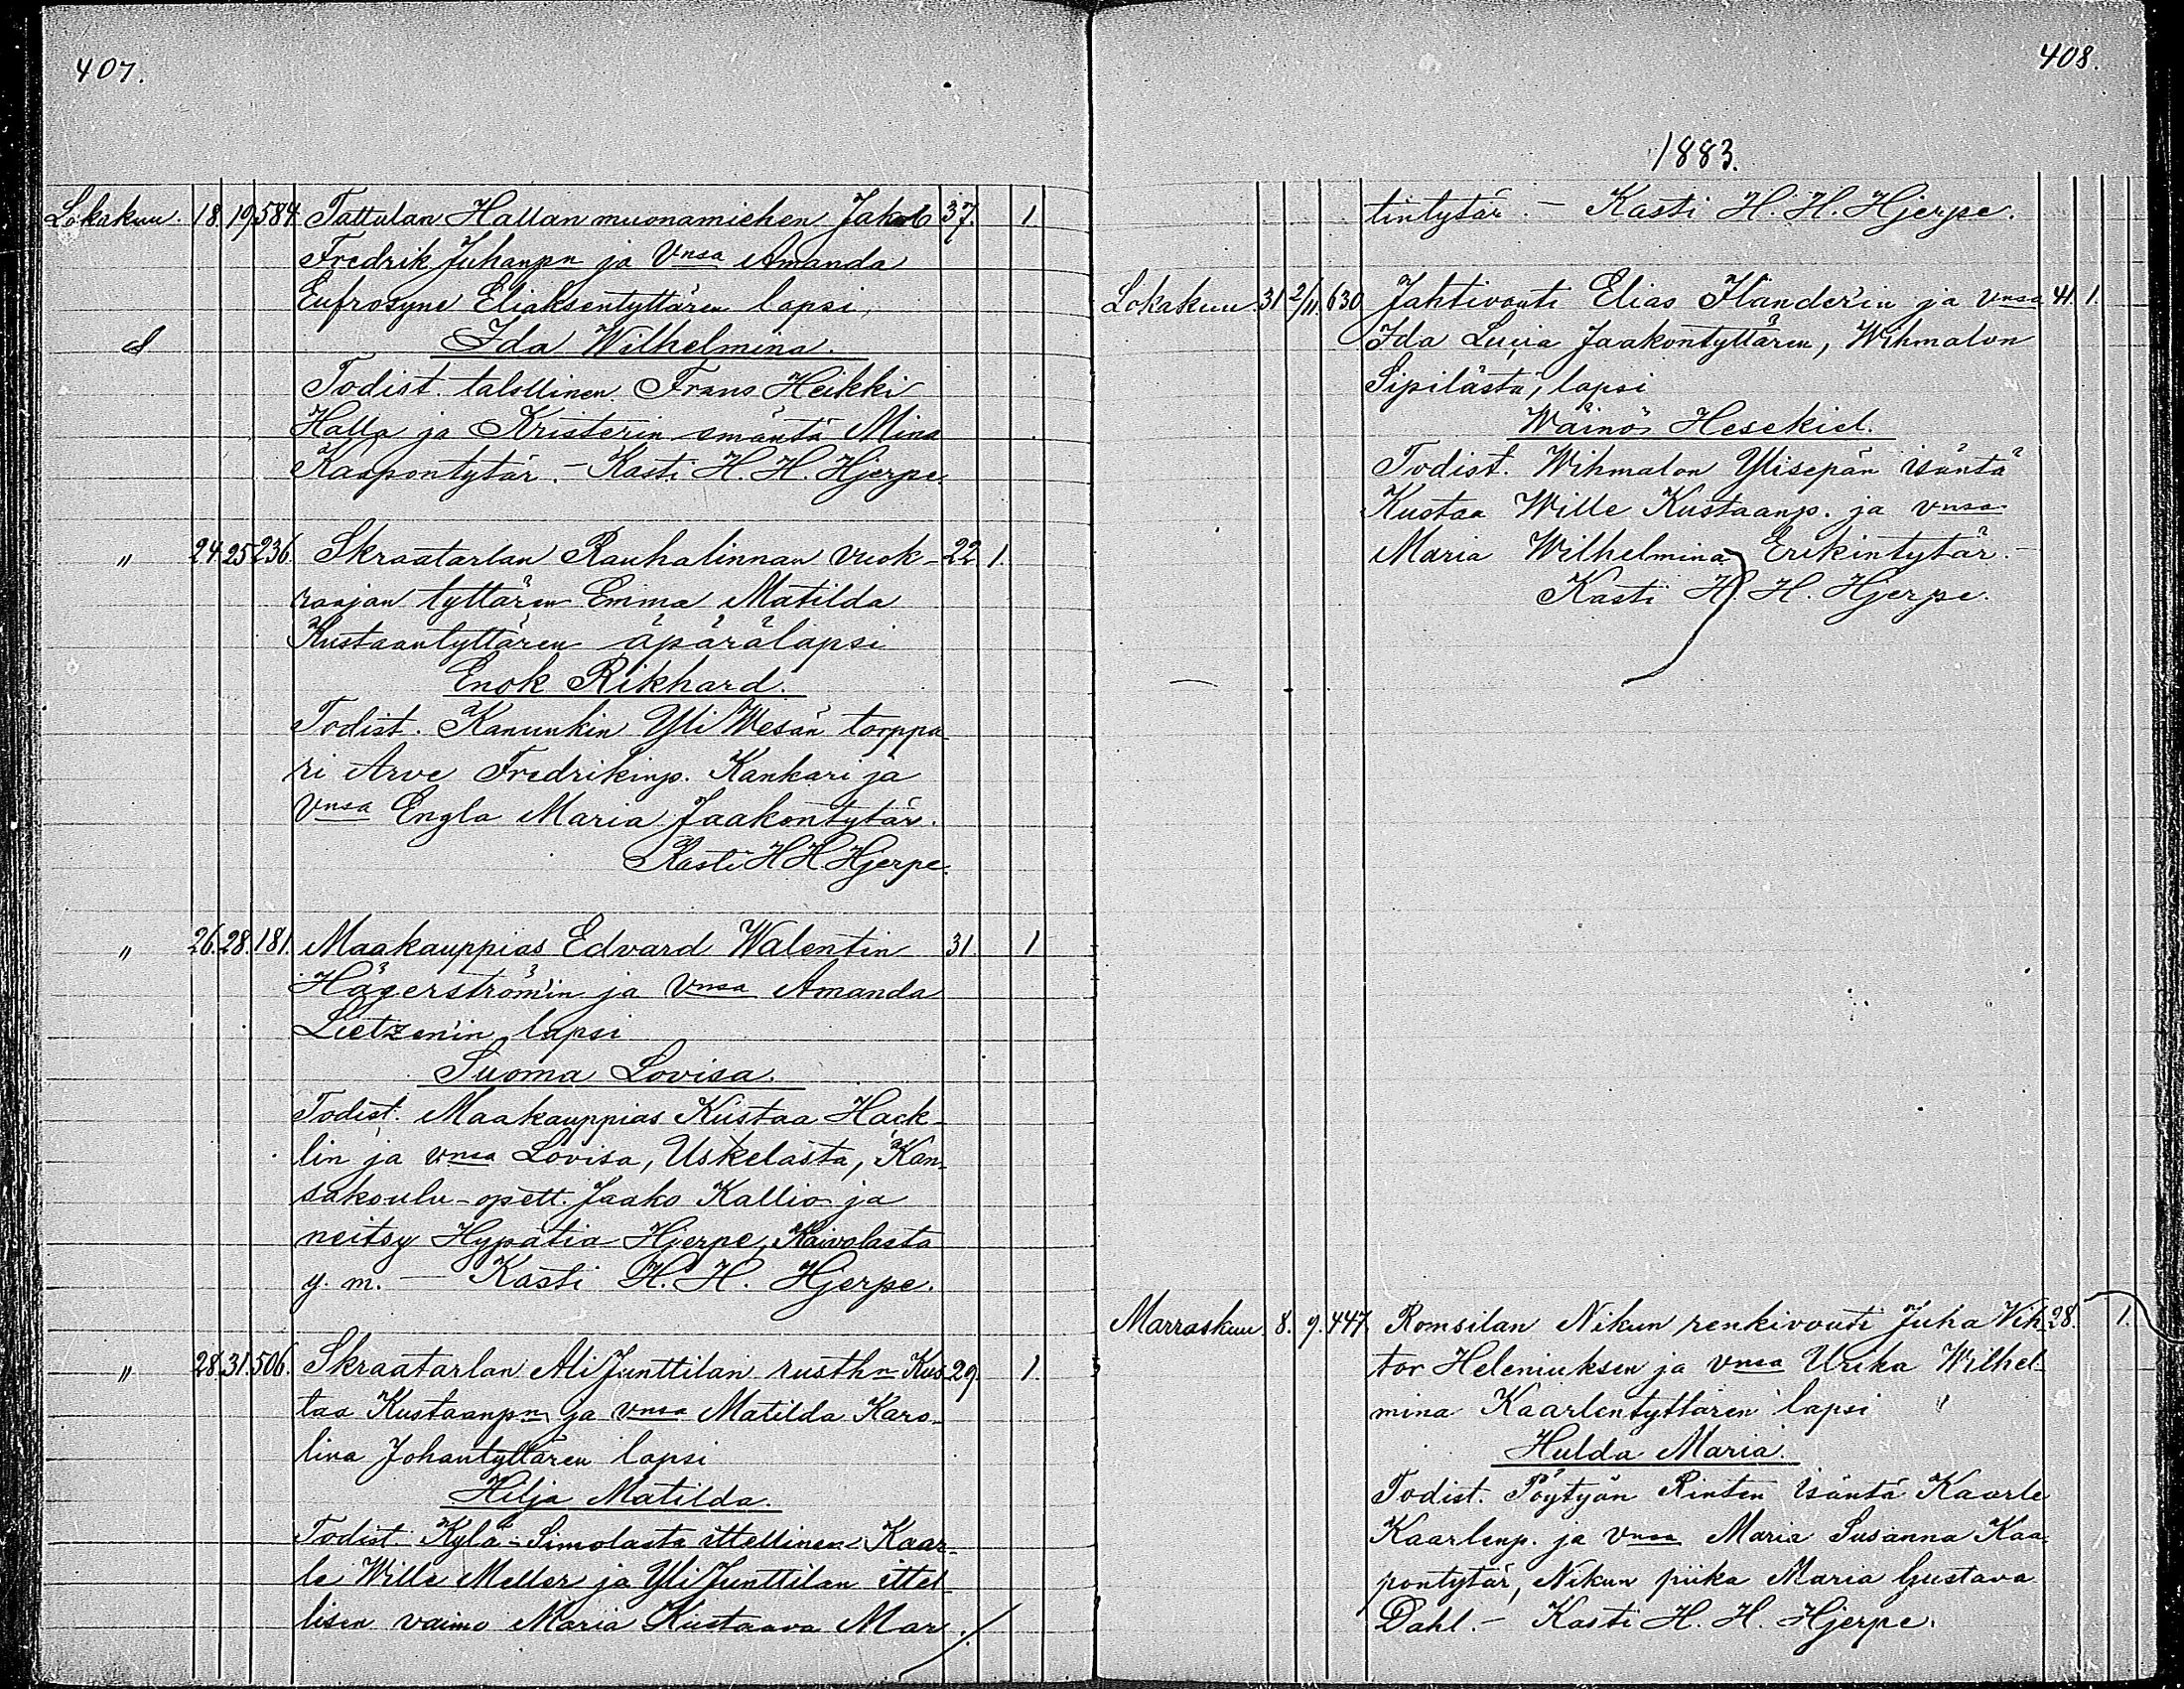 407.
Lokakuu. 18. 19. 584. Tattulan Hallan muonamiehen Jakob 37. 1.
Fredrik Juhanpn ja Vnsa Amanda
Eufrosyne Eliaksentyttären lapsi,
Ida Wilhelmina.
Todist. talollinen Frans Heikki
Halla ja Kristerin emäntä Mina
Kaapontytär. – Kasti H. H. Hjerpe
" 24. 25 236. Skraatarlan Rauhalinnan vuok- 22. 1.
raajan tyttären Emma Matilda
Kustaantyttären äpärälapsi
Enok Rikhard.
Todist. Kanunkin Yli Wesän torppa-
ri Arve Fredrikinp. Kankari ja
Vnsa Engla Maria Jaakontytär.
Kasti H H Hjerpe.
" 26. 28. 181. Maakauppias Edvard Walentin 31. 1
Hägerström'in ja Vnsa Amanda
Lietzen'in lapsi
Suoma Lovisa.
Todist. Maakauppias Kustaa Hack-
lin ja vnsa Lovisa, Uskelasta, Kan-
sakoulu-opett. Jaako Kallio ja
neitsy Hypatia Hjerpe, Kaivolasta
y. m. – Kasti H. H. Hjerpe.
" 28. 31. 506. Skraatarlan Ali Junttilan rusthn Kus- 29. 1.
taa Kustaanpn ja vnsa Matilda Karo-
lina Johantyttären lapsi
Hilja Matilda.
Todist. Kylä-Simolasta ittellinen Kaar-
le Wille Meller ja Yli Junttilan ittel-
lisen vaimo Maria Kustaava Mar ./.
408.
1883.
tintytär. – Kasti H. H. Hjerpe.
Lokakuu. 31 2/11. 630 Jahtivouti Elias Flander'in ja vnsa 41. 1.
Ida Lucia Jaakontyttären, Wihmalon
Sipilästä, lapsi
Wäinö Hesekiel.
Todist. Wihmalon Ylisepän isäntä
Kustaa Wille Kustaanp. ja vnsa
Maria Wilhelmina Erikintytär. –
Kasti H. H. Hjerpe.
Marraskuu. 8. 9. 447. Romsilan Nikun renkivouti Juha Vih- 28. 1.
tor Heleniuksen ja vnsa Ulrika Wilhel-
mina Kaarlentyttären lapsi
Hulda Maria.
Todist. Pöytyän Rinten isäntä Kaarle
Kaarlenp. ja Vnsa Maria Susanna Kaa-
pontytär, Nikun piika Maria Gustava
Dahl. – Kasti H. H. Hjerpe.